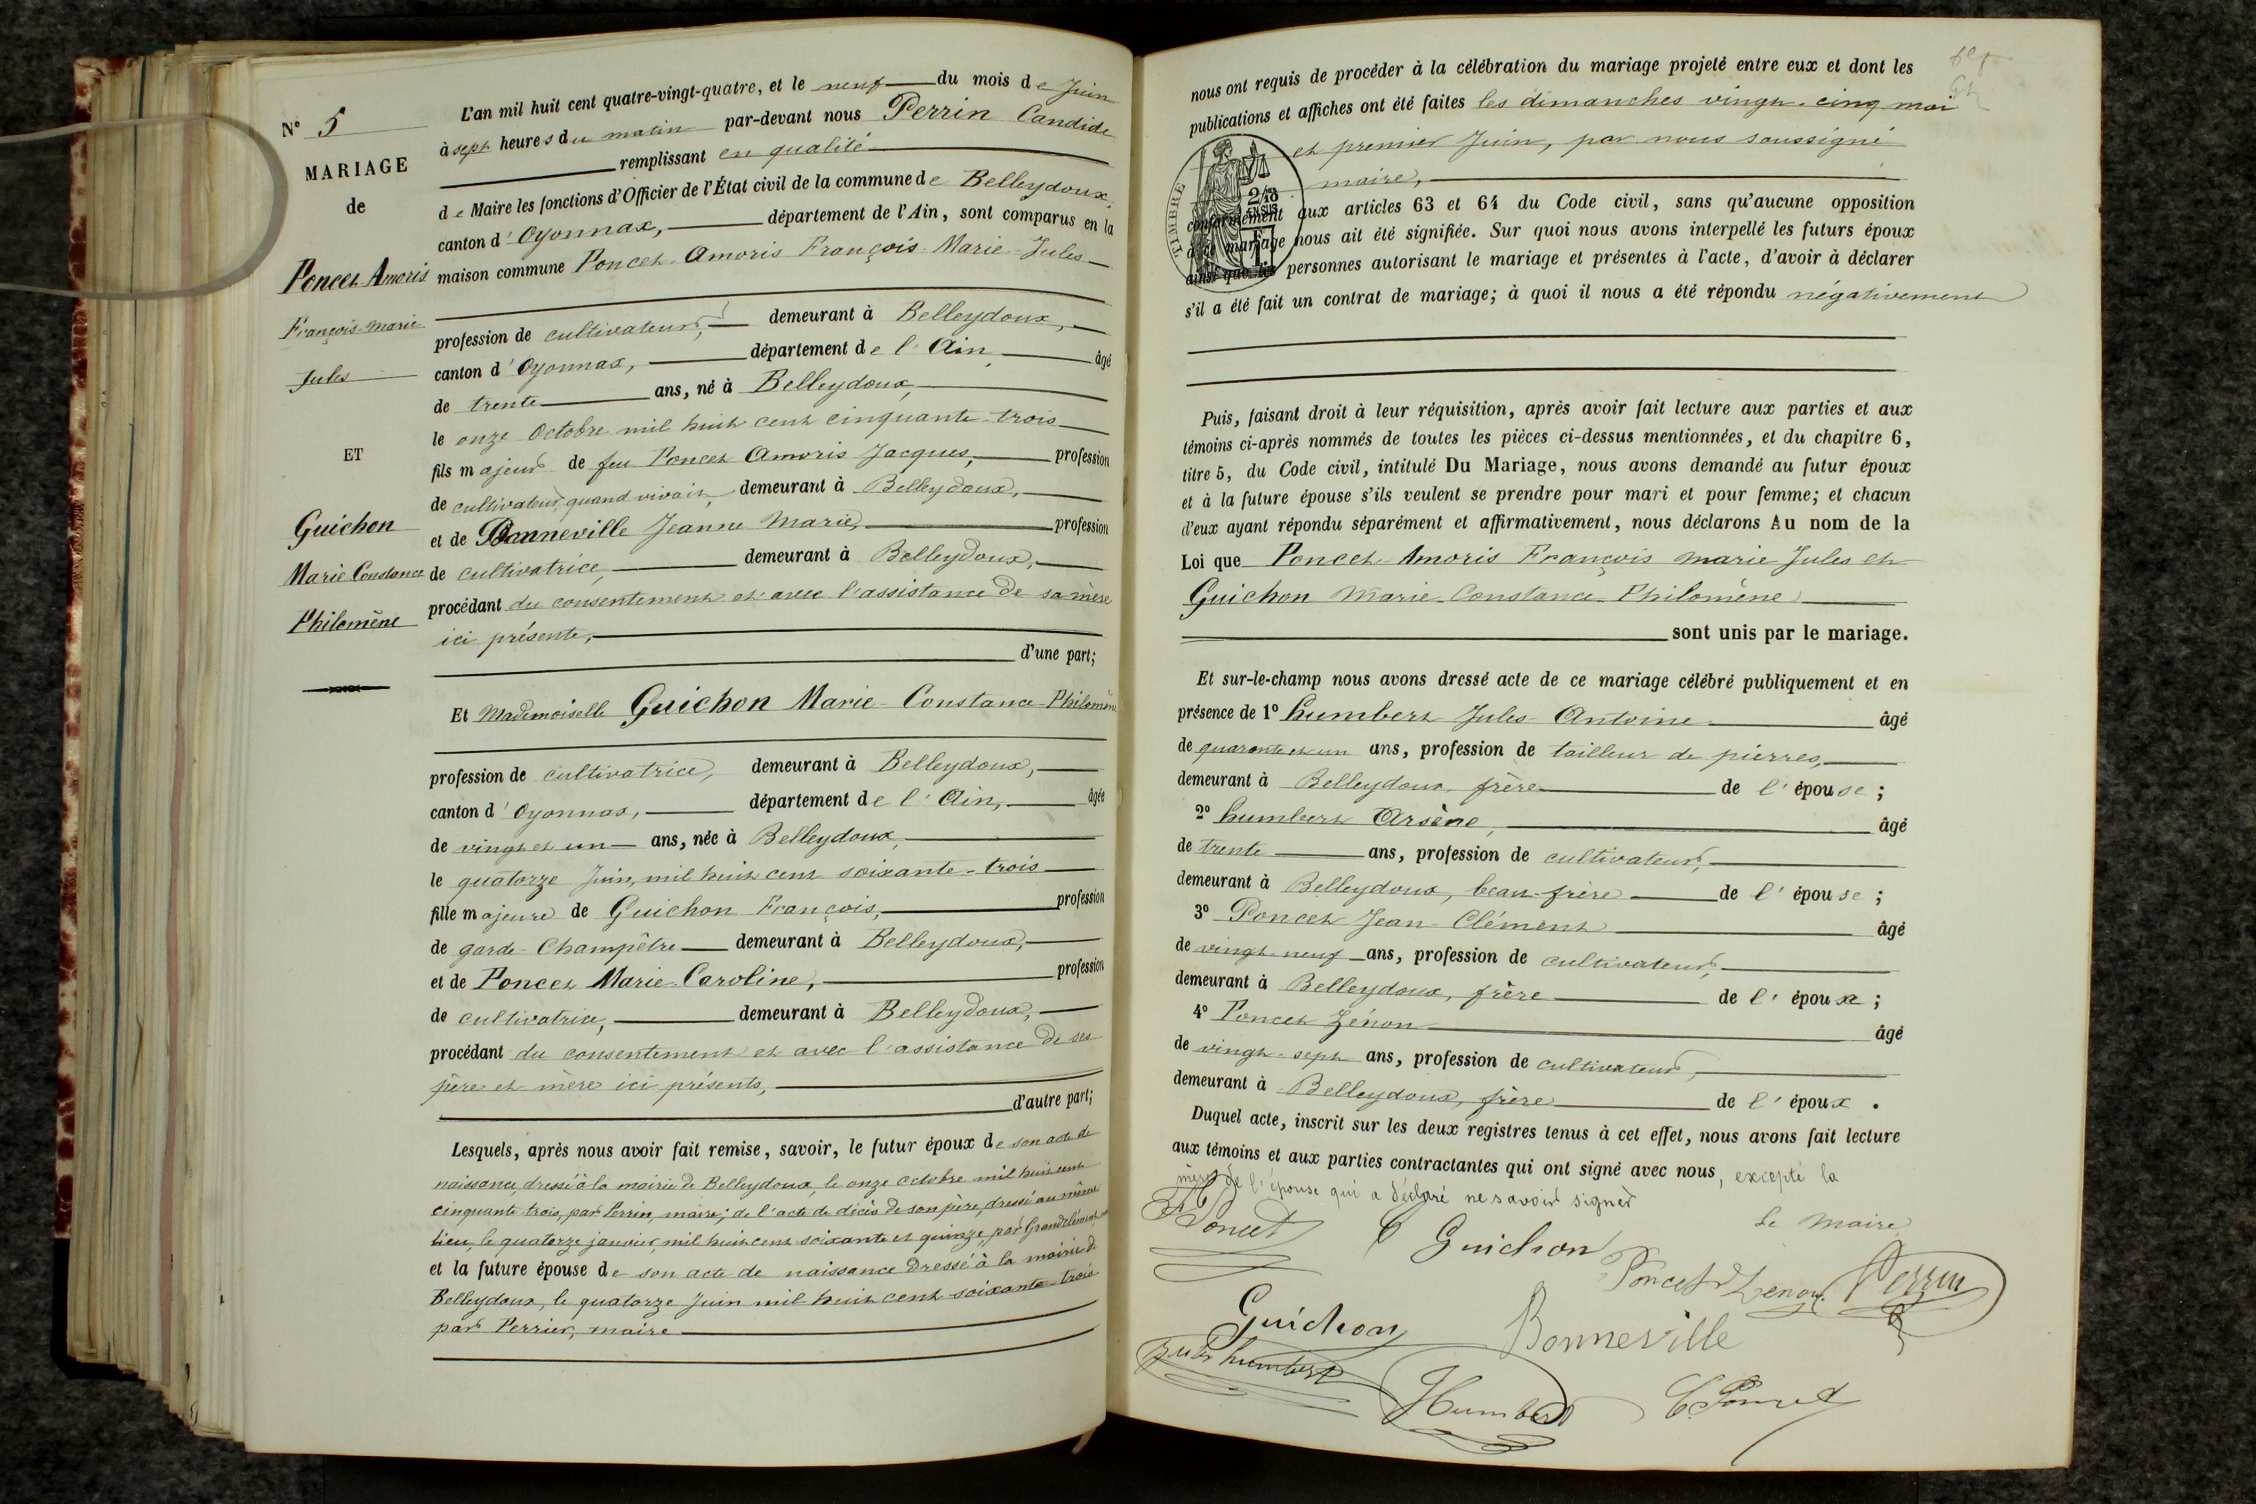 N° 5
MARIAGE
de
Poncet Amoris
François-Marie
Jules
ET
Guichon
Marie Constance
Philomène
L'an mil huit cent quatre-vingt-quatre, et le neuf du mois de Juin
à sept heures du matin par-devant nous Perrin Candide
remplissant en qualité
de Maire les fonctions d'Officier de l'État civil de la commune de Belleydoux,
canton d'Oyonnax, département de l'Ain, sont comparus en la
maison commune Poncet-Amoris François-Marie-Jules
profession de cultivateur, demeurant à Belleydoux,
canton d'Oyonnax, département de l'Ain âgé
de trente ans, né à Belleydoux,
le onze Octobre mil huit cent cinquante-trois
fils majeur de feu Poncet Amoris Jacques, profession
de cultivateur, quand vivait, demeurant à Belleydoux,
et de Bonneville Jeanne Marie, profession
de cultivatrice, demeurant à Belleydoux,
procédant du consentement et avec l'assistance de sa mère
ici présente,
d'une part;
Et Mademoiselle Guichon Marie-Constance-Philomène
profession de cultivatrice, demeurant à Belleydoux,
canton d'Oyonnax, département de l'Ain, âgée
de vingt et un ans, née à Belleydoux,
le quatorze Juin, mil huit cent soixante-trois
fille majeure de Guichon François, profession
de garde-Champêtre demeurant à Belleydoux,
et de Poncet Marie-Caroline, profession
de cultivatrice, demeurant à Belleydoux,
procédant du consentement et avec l'assistance de ses
père et mère ici présents,
d'autre part;
Lesquels, après nous avoir fait remise, savoir, le futur époux de son acte de
naissance, dressé à la mairie de Belleydoux, le onze octobre mil huit cent
cinquante trois, par Perrin, maire; de l'acte de décès de son père, dressé au même
lieu, le quatorze janvier, mil huit cent soixante et quinze, par Grandclément,
et la future épouse de son acte de naissance dressé à la mairie de
Belleydoux, le quatorze Juin mil huit cent soixante-trois
par Perrier, maire
nous ont requis de procéder à la célébration du mariage projeté entre eux et dont les
publications et affiches ont été faites les dimanches vingt-cinq mai
et premier Juin, par nous soussigné
maire,
TIMBRE
conformément aux articles 63 et 64 du Code civil, sans qu'aucune opposition
à ce mariage nous ait été signifiée. Sur quoi nous avons interpellé les futurs époux
ainsi que les personnes autorisant le mariage et présentes à l'acte, d'avoir à déclarer
s'il a été fait un contrat de mariage; à quoi il nous a été répondu négativement
Puis, faisant droit à leur réquisition, après avoir fait lecture aux parties et aux
témoins ci-après nommés de toutes les pièces ci-dessus mentionnées, et du chapitre 6,
titre 5, du Code civil, intitulé Du Mariage, nous avons demandé au futur époux
et à la future épouse s'ils veulent se prendre pour mari et pour femme; et chacun
d'eux ayant répondu séparément et affirmativement, nous déclarons Au nom de la
Loi que Poncet-Amoris François Marie Jules et
Guichon Marie-Constance-Philomène
sont unis par le mariage.
Et sur-le-champ nous avons dressé acte de ce mariage célébré publiquement et en
présence de 1° humbert Jules-Antoine âgé
de quarante et un ans, profession de tailleur de pierres,
demeurant à Belleydoux, frère de l'épouse;
2° humbert Arsène, âgé
de trente ans, profession de cultivateur,
demeurant à Belleydoux, beau-frère de l'épouse;
3° Poncet Jean-Clément âgé
de vingt neuf ans, profession de cultivateur,
demeurant à Belleydoux, frère de l'époux;
4° Poncet Zénon âgé
de vingt-sept ans, profession de cultivateur,
demeurant à Belleydoux, frère de l'époux.
Duquel acte, inscrit sur les deux registres tenus à cet effet, nous avons fait lecture
aux témoins et aux parties contractantes qui ont signé avec nous, excepté la
mère de l'épouse qui a déclaré ne savoir signer
Le Maire
Poncet
C Guichon
Poncet Zenon
Perrin
Guichon
Bonneville
Jules humbert
Humbert
C. Poncet